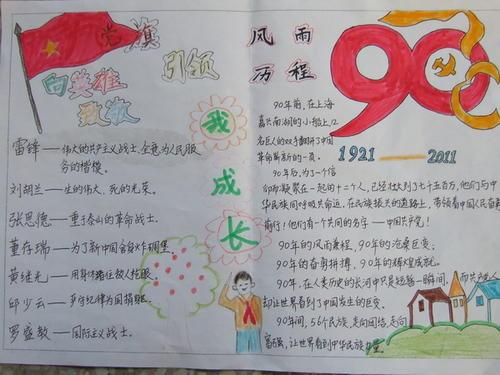 党旗
引领
我
成
长
向英雄
致敬
雷锋——伟大的共产主义战士,全意为人民服
务的楷模。
刘胡兰——生的伟大、死的光荣。
张思德——重于泰山的革命战士。
董存瑞——为了新中国舍身炸碉堡。
黄继光——用身体堵住敌人枪眼。
邱少云——严守纪律为国捐躯。
罗盛教——国际主义战士。
风雨
历程
90
1921——2011
90年前,在上海
嘉兴南湖的小船上,12
名巨人的双手翻开了中国
革命崭新的一页。
90年后,为了一个信
仰而凝聚在一起的十二个人,已经壮大到了七千多万,他们与中
华民族同呼吸共命运,在民族振兴的道路上,带领着中国人民奋勇
前行!他们有一个共同的名字——中国共产党!
90年的风雨兼程,90年的沧桑巨变;
90年的奋勇拼搏,90年的辉煌成就。
90年,在人类历史的长河中只是短短一瞬间,而共产党人
却让世界看到了中国发生的巨变。
90年间,56个民族,走向团结,走向
富强,让世界看到中华民族